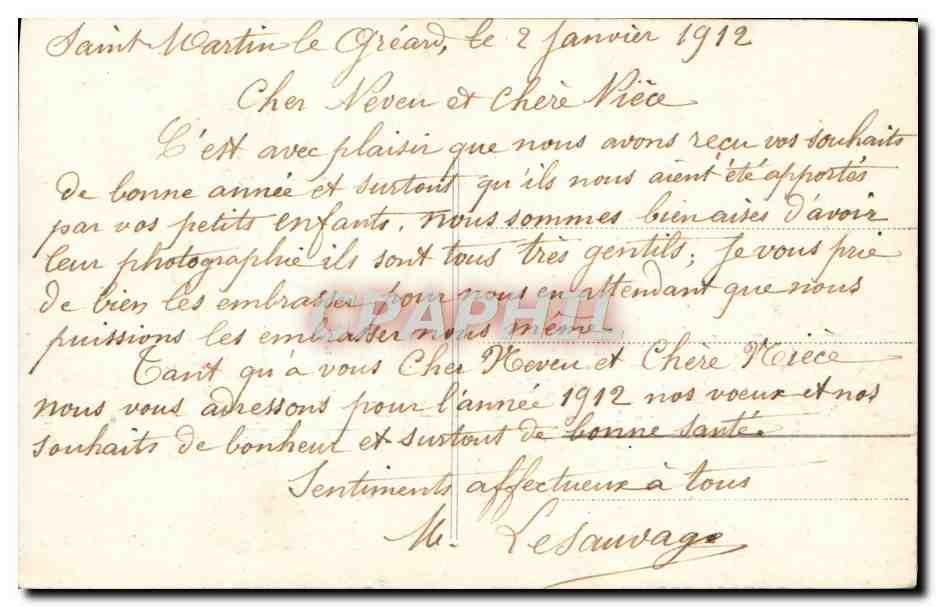 Saint Martin le Gréard, le 2 Janvier 1912
Cher Neveu et Chère Nièce
C'est avec plaisir que nous avons reçu vos souhaits
de bonne année et surtout qu'ils nous aient été apportés
par vos petits enfants. nous sommes bien aises d'avoir
leur photographie ils sont tous très gentils; je vous prie
de bien les embrasser pour nous en attendant que nous
puissions les embrasser nous même
Tant qu'à vous Cher Neveu et Chère Nièce
nous vous adressons pour l'année 1912 nos voeux et nos
souhaits de bonheur et surtout de bonne santé.
Sentiments affectueux à tous
M. Lesauvage
CPAPHIL